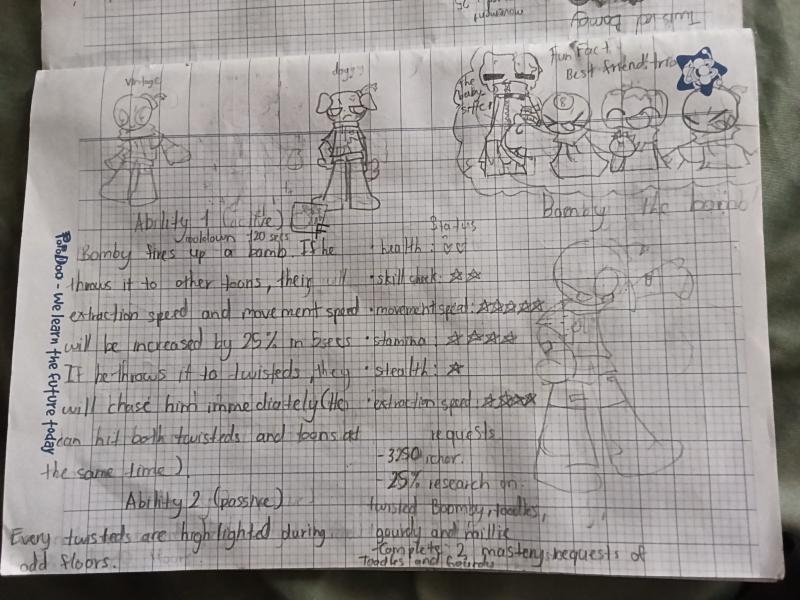 Twisted Bomby
movement
25
Fun Fact
Best friend trio
the baby sitter
8
vintage
doggy
Boomby the bomb
Ability 1 (active)
cooldown 120 secs
Bomby fires up a bomb. If he
throws it to other toons, their will
extraction speed and movement speed
will be increased by 25% in 5secs
If he throws it to twisteds, they
will chase him immediately (He
can hit both twisteds and toons at
the same time).
Ability 2 (passive)
Every twisteds are highlighted during
odd floors.
Status
• health: ♡♡
• skill check: ☆☆
• movement speed: ☆☆☆☆☆
• stamina: ☆☆☆☆
• stealth: ☆
• extraction speed: ☆☆☆☆
requests
- 3250 ichor.
- 25% research on
twisted Boomby, toodles,
gourdy and millie
- Complete 2 mastery requests of
Toodles and Gourdy
POPODOO - We learn the future today